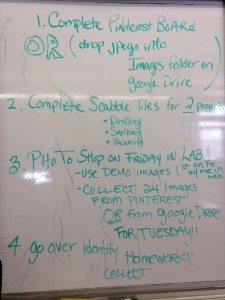 1. Complete Pinterest Board
OR (drop jpegs into
Images folder on
google Drive)
2. Complete Scabble Tiles for 2
• Drilling
• Sanding
• Painting
3. PHOTO Shop on FRIDAY in LAB
- use DEMO images (1st on Fri
w/ me in Lab
- COLLECT 24 Images
FROM PINTEREST
OR from google DRIVE
FOR TUESDAY!!
4. go over identity Homework!!
COLLECT